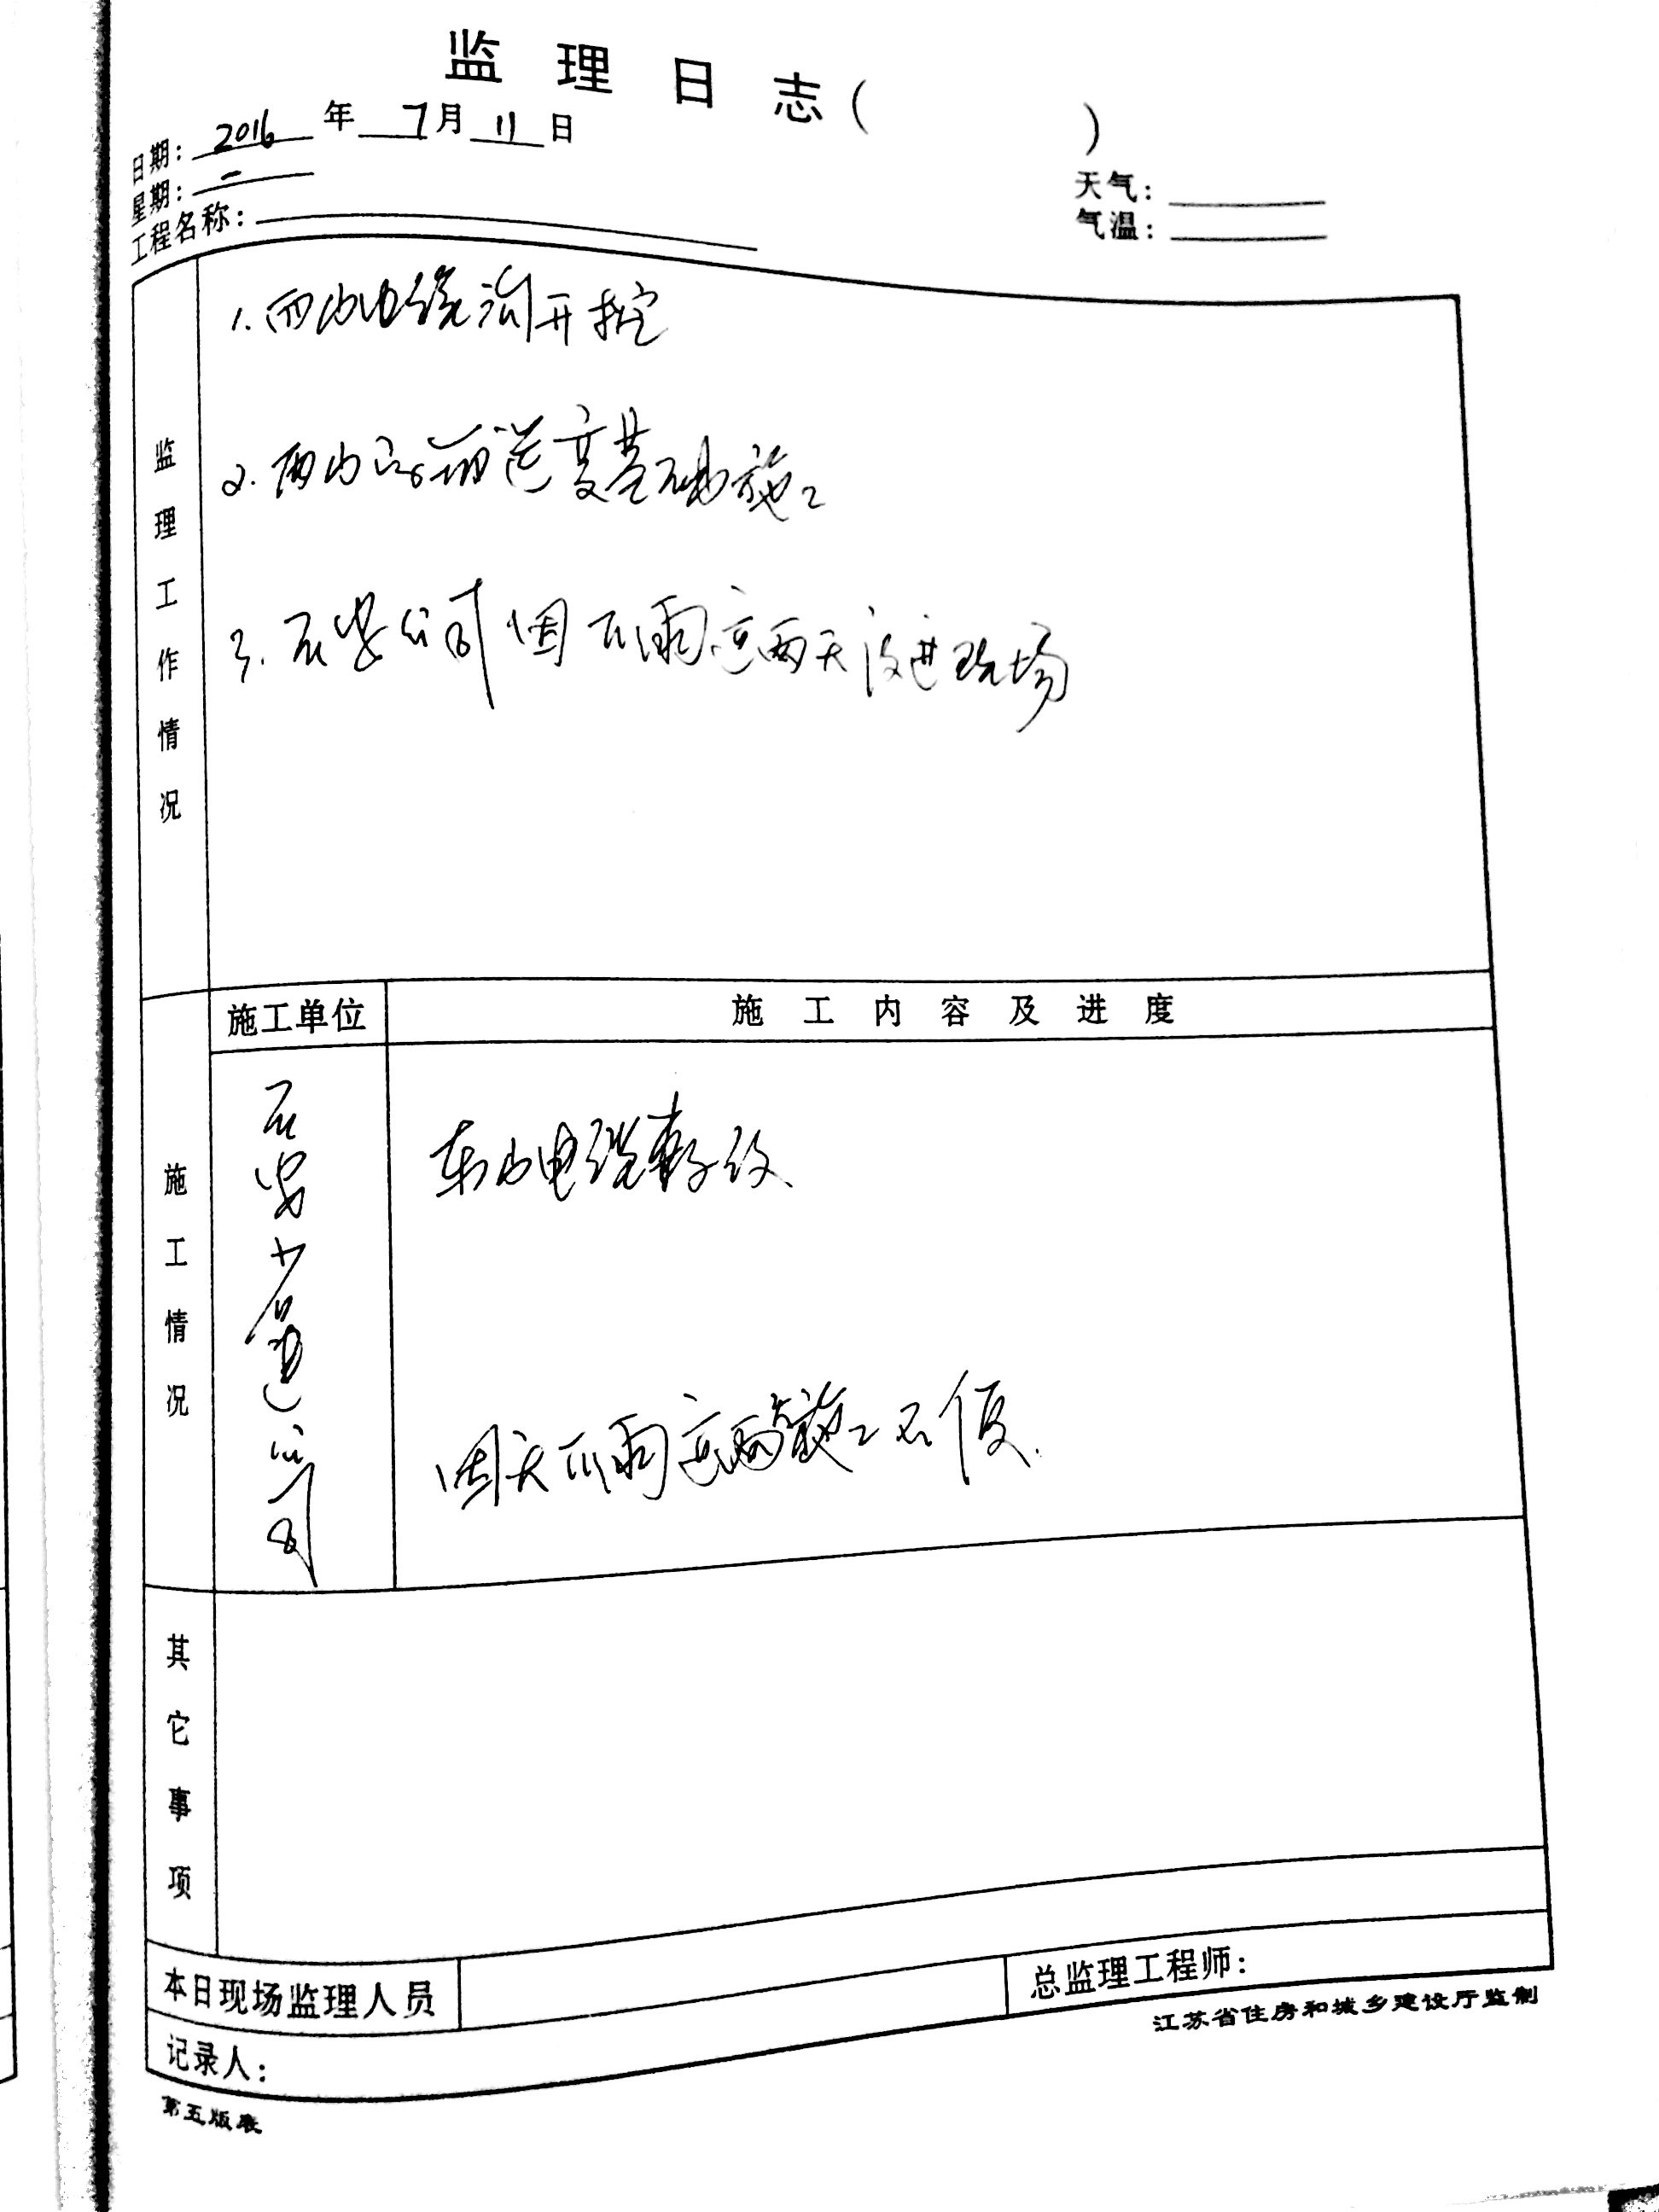 监理日志( )
日期: 2016 年 7 月 11 日
星期: 一
天气:
气温:
工程名称:
监理工作情况
1. 西山电缆沟开挖
2. 西山 变基础施工
3. 石安公司因下雨这两天没进现场
施工单位
施工内容及进度
施工情况
石安 公司
东山电缆
因天下雨这两 施工不便.
其它事项
本日现场监理人员
总监理工程师:
记录人:
江苏省住房和城乡建设厅监制
第五版表